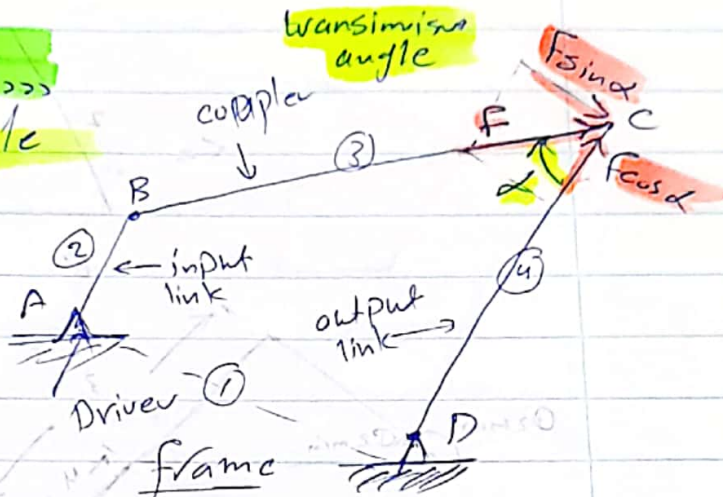 transimision
angle
>>>
le
coppler
F
Fsinα
C
③
α
Fcosα
B
②
input
link
④
A
output
link
Driver
①
D
frame